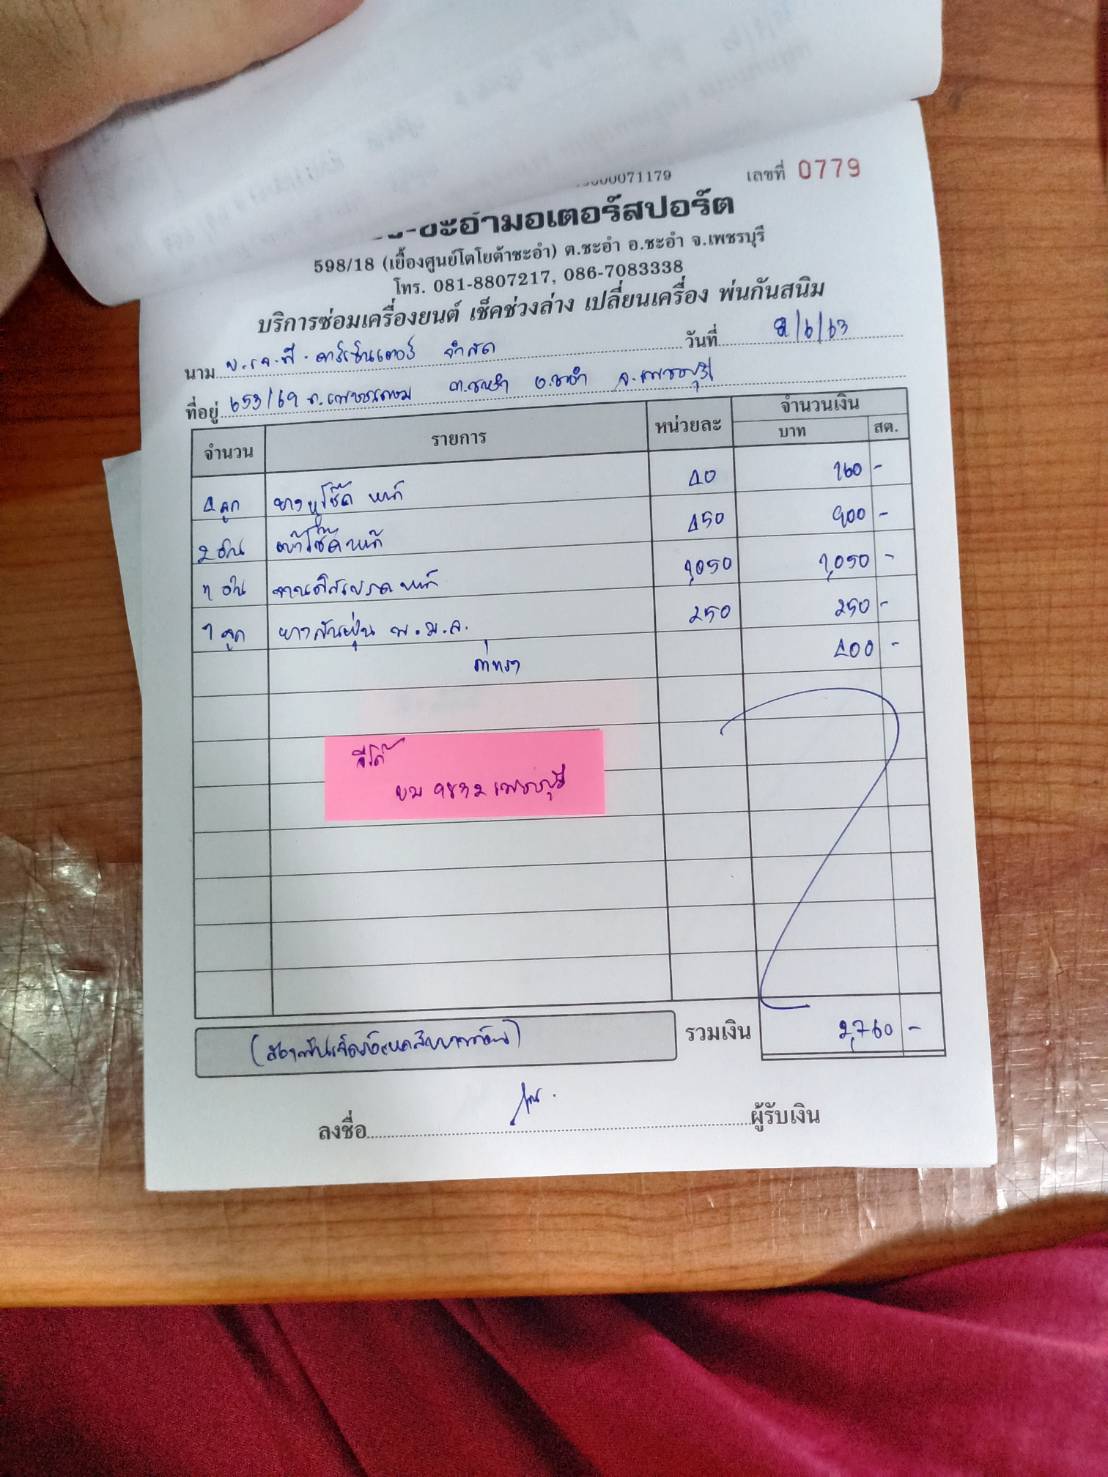 0000071179
เลขที่ 0779
-ชะอำมอเตอร์สปอร์ต
598/18 (เยื้องศูนย์โตโยต้าชะอำ) ต.ชะอำ อ.ชะอำ จ.เพชรบุรี
โทร. 081-8807217, 086-7083338
บริการซ่อมเครื่องยนต์ เช็คช่วงล่าง เปลี่ยนเครื่อง พ่นกันสนิม
นาม บ.เจ.พี.คาร์เซ็นเตอร์ จำกัด วันที่ 8/6/63
ที่อยู่ 653/69 ถ.เพชรเกษม ต.ชะอำ อ.ชะอำ จ.เพชรบุรี
จำนวน รายการ หน่วยละ จำนวนเงิน
บาท สต.
4 ลูก ยางหูโช๊ค หน้า 40 160 -
2 อัน เบ้าโช๊คหน้า 450 900 -
1 อัน จานดิสเบรค หน้า 1,050 1,050 -
1 ลูก ยางกันฝุ่น พ.ม.ล. 250 250 -
ค่าแรง 400 -
วีโก้
บม 9832 เพชรบุรี
(สองพันเจ็ดร้อยหกสิบบาทถ้วน) รวมเงิน 2,760 -
ลงชื่อ ผู้รับเงิน